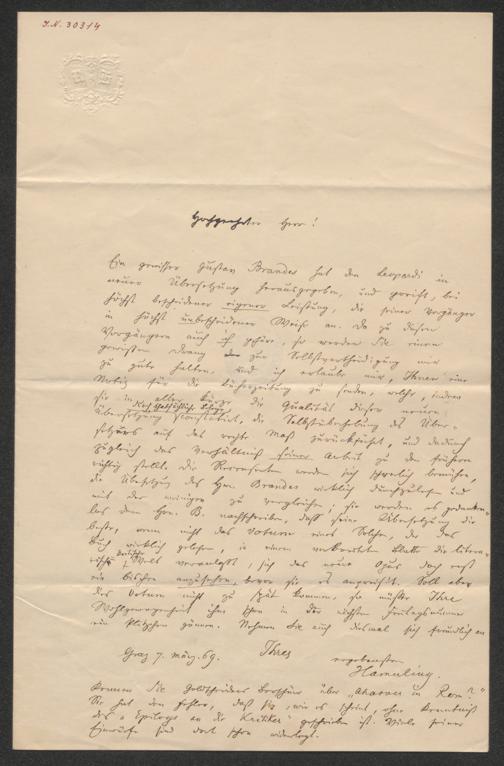 I.N. 30314
Hochgeehrter Herr!
Ein gewisser Gustav Brandes hat den Leopardi in
neuer Übersetzung herausgegeben, und preist, bei
höchst bescheidener eigener Leistung, die seiner Vorgänger
in höchst unbescheidener Weise an. Da zu diesen
Vorgängern auch ich gehöre, so werden Sie einen
gewissen Drang zur Selbstvertheidigung mir
zu gute halten, und ich erlaube mir, Ihnen eine
Notiz für die Bücherzeitung zu senden, welche, indem
sie in aller Kürze die Qualität dieser neuen
Übersetzung constatirt, die Selbstüberhebung des Über-
setzers auf das rechte Maß zurückführt, und dadurch
zugleich das Verhältniß seiner Arbeit zu den frühern
richtig stellt. Die Recensenten werden sich schwerlich bemühen,
die Übersetzung des Hrn. Brandes wirklich durchzulesen und
mit der meinigen zu vergleichen; sie werden es gedanken-
los dem Hrn. B. nachschreiben, daß seine Übersetzung die
beste, wenn nicht das Votum eines Solchen, der das
Buch wirklich gelesen, in einem verbreiteten Blatte die litera-
rische Welt veranlaßt, sich das neue Opus doch erst
ein bischen anzusehen, bevor sie es anpreist. Soll aber
das Votum nicht zu spät kommen, so müßte Ihre
Wohlgewogenheit ihm schon in der nächsten Freitagsnummer
ein Plätzchen gönnen. Nehmen Sie auch diesmal sich freundlich an
Graz 7. März 69. Ihres ergebensten
Hamerling.
Kennen Sie Goldscheiders Broschüre über „Ahasver in Rom?"
Sie hat den Fehler, daß sie, wie es scheint, ohne Kenntniß
des „Epilogs an die Kritiker" geschrieben ist. Viele seiner
Einwürfe sind dort schon widerlegt.